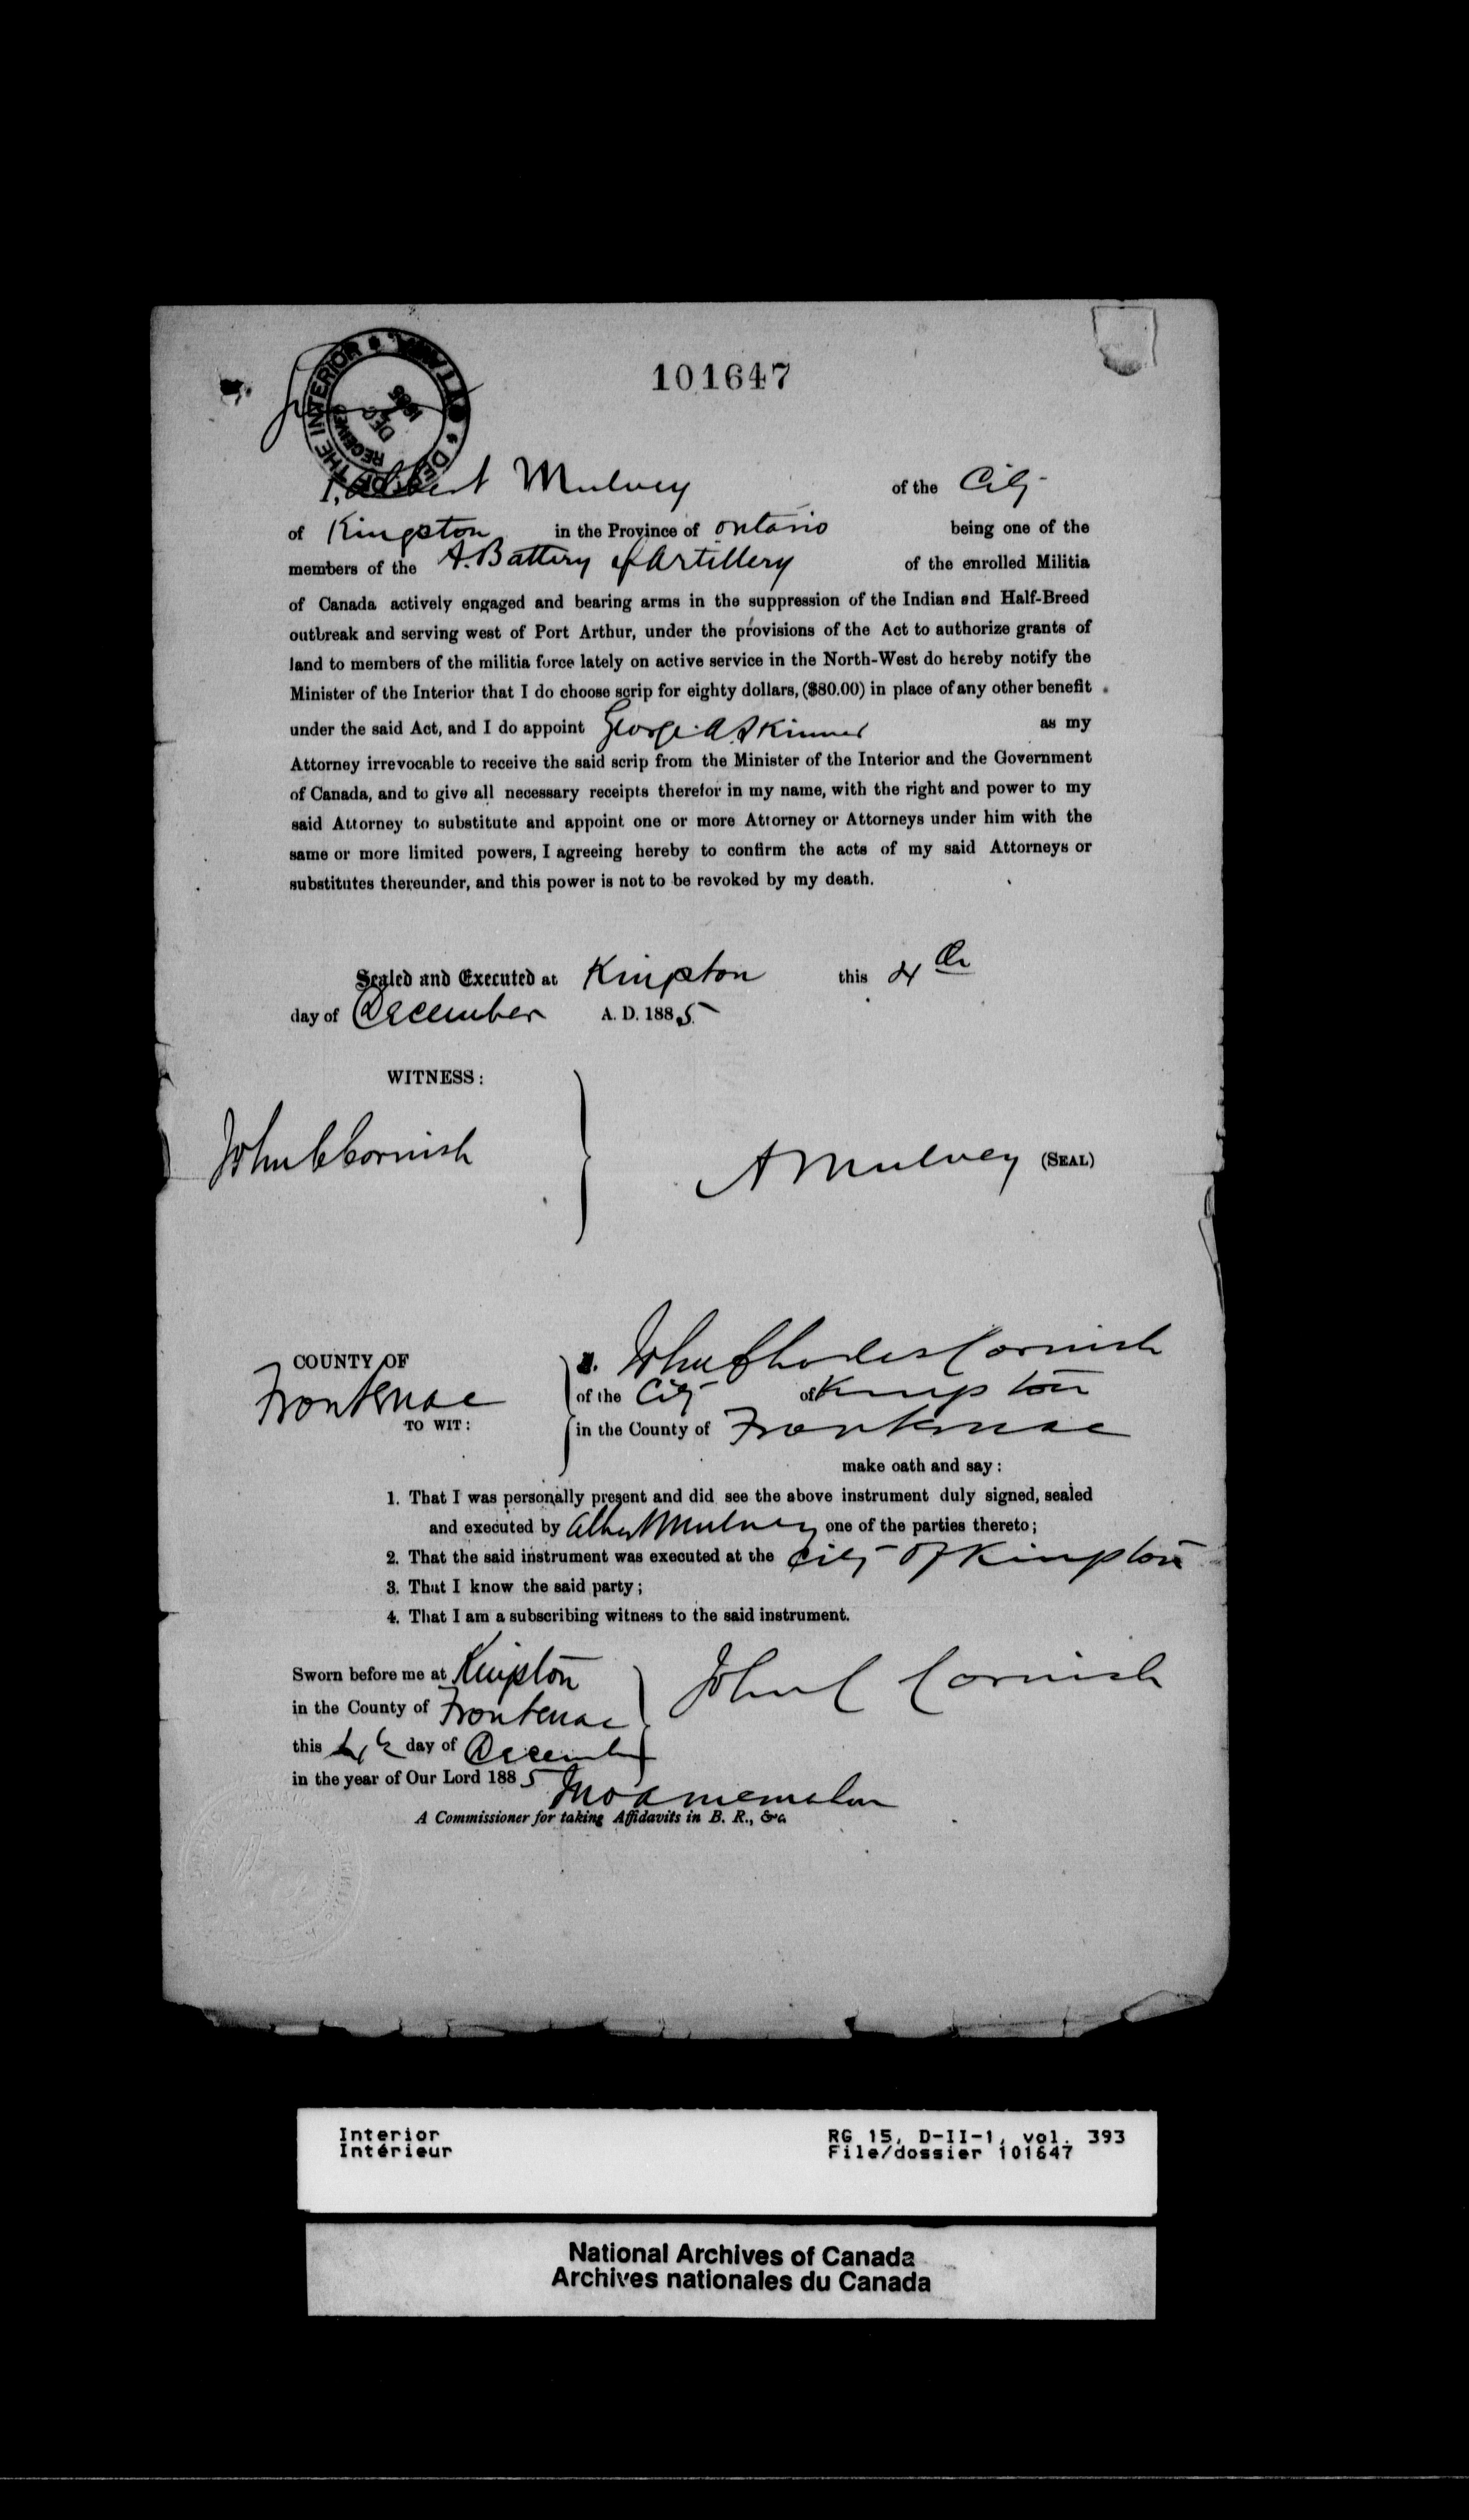 101647
THE INTERIOR
RECEIVED
DEC
1885
I, Albert Mulvey of the City
of Kingston in the Province of Ontario being one of the
members of the A. Battery of Artillery of the enrolled Militia
of Canada actively engaged and bearing arms in the suppression of the Indian and Half-Breed
outbreak and serving west of Port Arthur, under the provisions of the Act to authorize grants of
land to members of the militia force lately on active service in the North-West do hereby notify the
Minister of the Interior that I do choose scrip for eighty dollars, ($80.00) in place of any other benefit
under the said Act, and I do appoint George A. Skinner as my
Attorney irrevocable to receive the said scrip from the Minister of the Interior and the Government
of Canada, and to give all necessary receipts therefor in my name, with the right and power to my
said Attorney to substitute and appoint one or more Attorney or Attorneys under him with the
same or more limited powers, I agreeing hereby to confirm the acts of my said Attorneys or
substitutes thereunder, and this power is not to be revoked by my death.
Sealed and Executed at Kingston this 4th
day of December A. D. 1885
WITNESS:
John C Cornish
A Mulvey (SEAL)
COUNTY OF
Frontenac
TO WIT:
I. John Charles Cornish
of the City of Kingston
in the County of Frontenac
make oath and say:
1. That I was personally present and did see the above instrument duly signed, sealed
and executed by Albert Mulvey one of the parties thereto;
2. That the said instrument was executed at the City of Kingston
3. That I know the said party;
4. That I am a subscribing witness to the said instrument.
Sworn before me at Kingston
in the County of Frontenac
this 4th day of December
in the year of Our Lord 1885
John C Cornish
A Commissioner for taking Affidavits in B. R., &c.
Interior
Intérieur
RG 15, D-II-1, vol. 393
File/dossier 101647
National Archives of Canada
Archives nationales du Canada